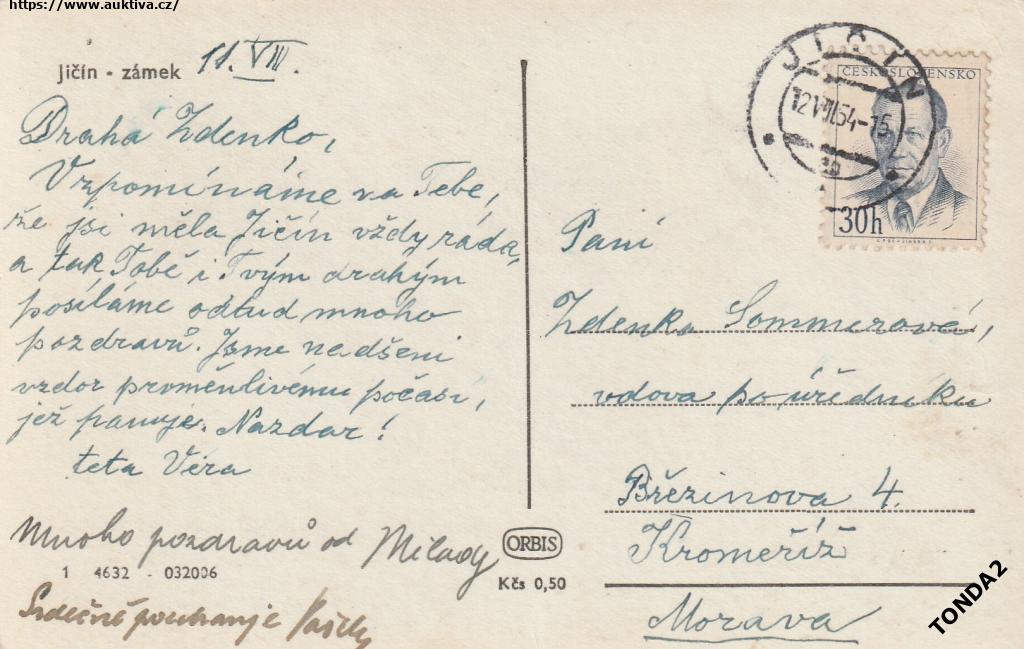 https://www.auktiva.cz/
Jičín - zámek 11. VII.
Drahá Zdenko,
Vzpomínáme na Tebe,
že jsi měla Jičín vždy ráda,
a tak Tobě i Tvým drahým
posíláme odtud mnoho
pozdravů. Jsme nadšeni
vzdor proměnlivému počasí,
jež panuje. Nazdar!
teta Věra
Mnoho pozdravů od Milady
1 4632 - 032006
Srdečně pozdravuje
ORBIS
Kčs 0,50
JIČÍN
12.VII.54-15
ČESKOSLOVENSKO
30h
Paní
Zdenka Sommerová,
vdova po úředníku
Březinova 4.
Kroměříž
Morava
TONDA2